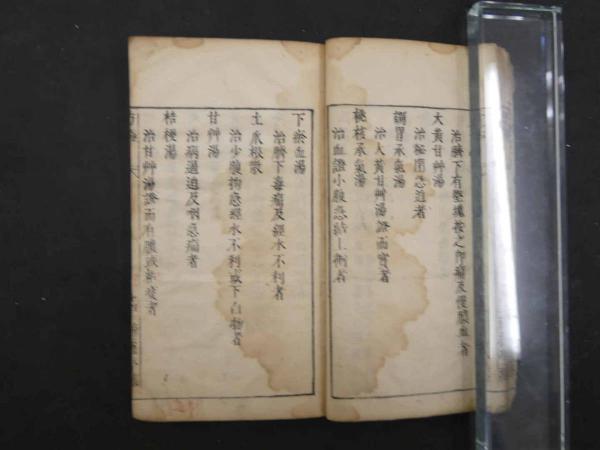 治臍下有堅塊按之即痛及便膿血者
大黃甘艸湯
治秘閉急迫者
調胃承氣湯
治大黃甘艸湯證而實者
桃核承氣湯
治血證小腹急結上衝者
下瘀血湯
治臍下毒痛及經水不利者
土瓜根散
治少腹拘急經水不利或下白物者
甘艸湯
治病逼迫及咽急痛者
桔梗湯
治甘艸湯證而有膿或黏痰者